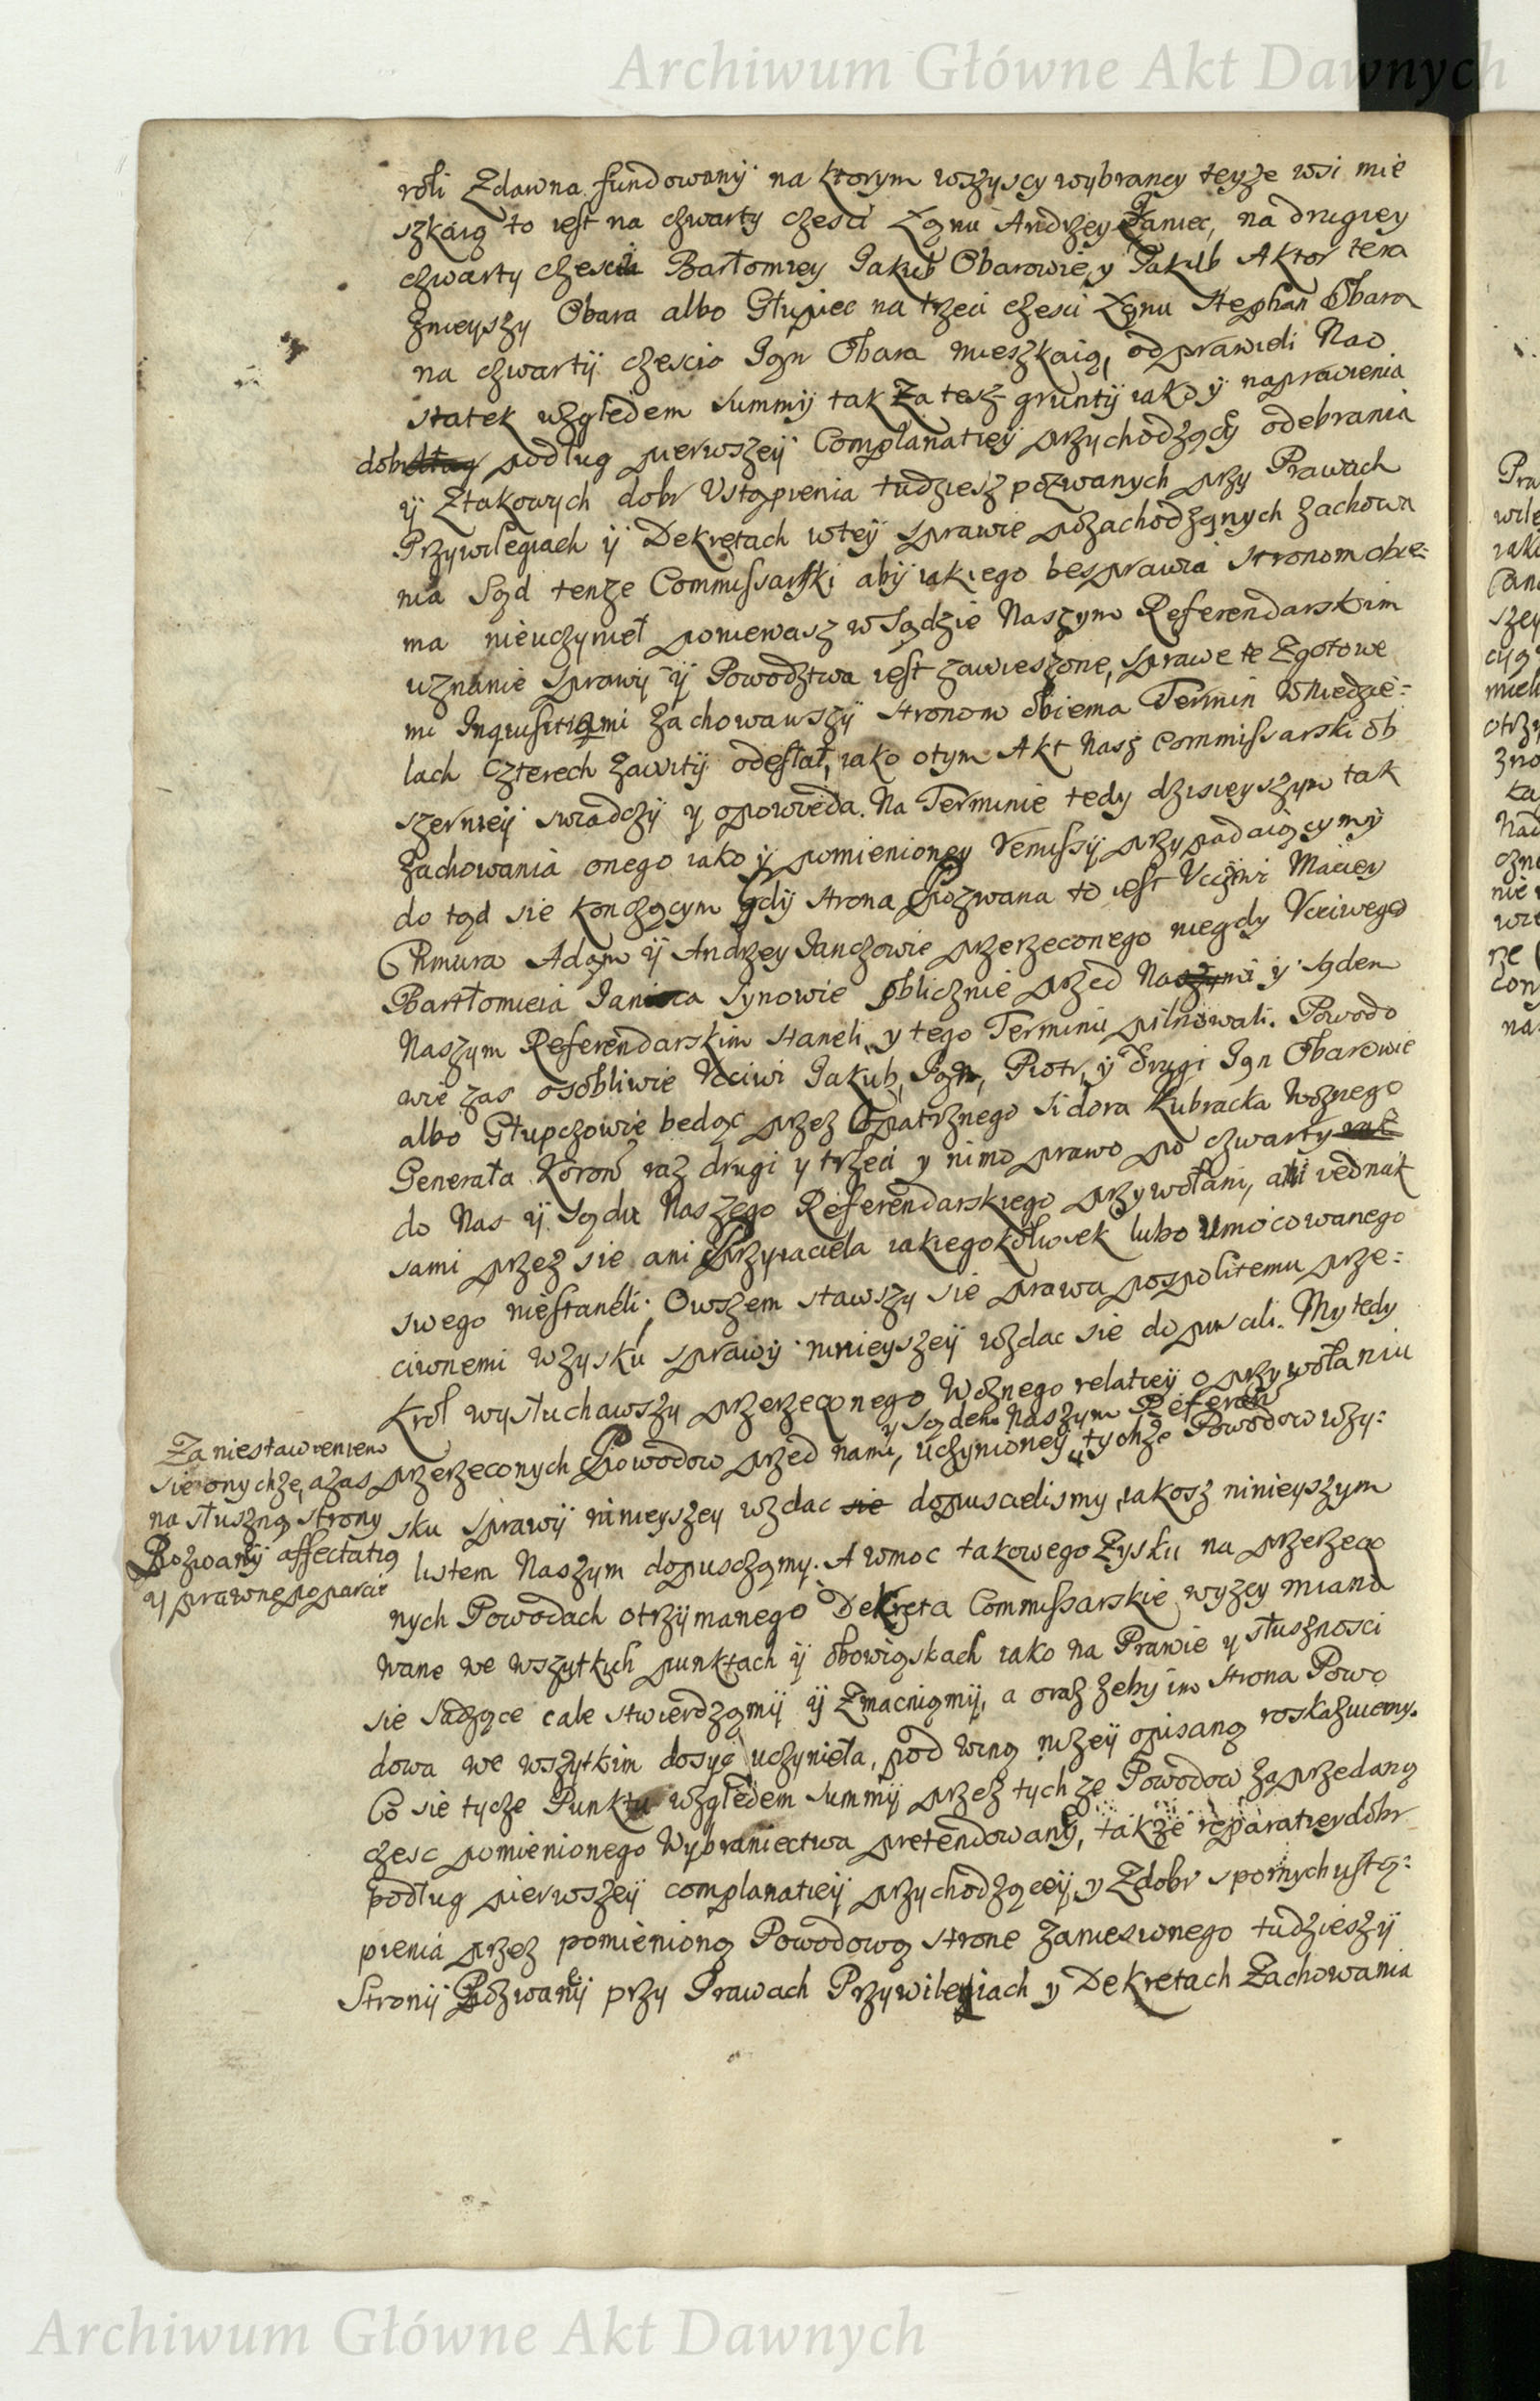 Archiwum Główne Akt Dawnych
roli Zdawna fundowany na ktorym wszyscy wybrancy teyze wsi mie
szkaią to iest na czwarty czesci Łąnu Andrzey Janiec, na drugiey
czwarty czesci Bartłomiey Jakub Obarowie, y Jakub Aktor tera
znieyszy Obara albo Głupiec na trzeci czesci Łąnu Stephan Obara
na czwartÿ czescio Jąn Obara mieszkaią, odprawieli Nao
statek względem summÿ tak Za tesz gruntÿ iako ÿ naprawienia
dobr podług pierwszeÿ Complanatieÿ przychodzącÿ odebrania
ÿ Ztakowych dobr Ustąpienia tudziesz pozwanych przy Prawach
Przywilegiach ÿ Dekretach wteÿ sprawie pozachodząnych zachowa
nia Sąd tenze Commissarski abÿ iakiego besprawia stronom obie=
ma nieuczynieł poniewasz w Sądzie Naszym Referendarskim
uznanie sprawÿ ÿ Powodztwa iest zawieszone, sprawe te Zgotowe
mi Inquisitiąmi zachowawszÿ stronom obiema Termin w Niedzie=
lach czterech zawitÿ odesłał, iako otym Akt Nasz Commissarski ob
szernieÿ swiadczÿ y opowieda. Na Terminie tedy dzisieyszym tak
zachowania onego iako ÿ pomienioney remissÿ przypadaiącymÿ
do tąd sie konczącym gdÿ strona Pozwana to iest Ucciwi Maciey
Chmura Adąm ÿ Andrzey Janczowie przerzeconego niegdy Ucciwego
Bartłomieia Janca synowie oblicznie przed Nami ÿ sądem
Naszym Referendarskim staneli, y tego Terminu pilnowali. Powodo
wie zas osobliwie Ucciwi Jakub, Jąn, Piotr, ÿ drugi Jąn Obarowie
albo Głupczowie bedąc przez Opatrznego Sidora Kubracka Woznego
Generała Koron raz drugi y trzeci y nimo prawo po czwarty raz
do Nas ÿ Sądu Naszego Referendarskiego przywołani, ani iednak
sami przez sie ani Przyiaciela iakiegokolwiek lubo Umocowanego
swego niestaneli; Owszem stawszy sie prawa pospolitemu prze=
ciwnemi wzysku sprawÿ ninieyszeÿ wzdac sie dopuscili. My tedy
Krol wysłuchawszy przerzeconego Woznego relatieÿ o przywołaniu
y Sądem Naszym Referen
przerzeconych Powodow przed nami, uczynioneÿ, tychże Powodow wzy:
Za niestawieniem
sie onychze, a zas
na słuszną strony
Pozwanÿ affectatią
y prawne poparcie
sku sprawÿ ninieyszey wzdac sie dopuscielismy, iakosz ninieyszym
listem Naszym dopusczamy. A wmoc takowego Zysku na przerzeco
nych Powodach otrzÿmanego Dekreta Commissarskie wyzey miano
wane we wszytkich punktach ÿ obowiąskach iako na Prawie y słusznosci
sie sadzące cale stwierdzamÿ ÿ Zmacniąmÿ, a oraz zeby im strona Powo
dowa we wszytkim dosyc uczynieła, pod winą nizeÿ opisaną roskazuiemy.
Co sie tycze Punktu względem summÿ przez tych ze Powodow za przedaną
czesc pomienionego Wybraniectwa pretendowaneÿ, także reparatiey dobr
podług pierwszeÿ complanatieÿ przychodzącey, y Zdobr spornych ustą:
pienia przez pomienioną Powodową strone zaniesionego tudzieszÿ
Stronÿ Pozwaneÿ przy Prawach Przywilegiach y Dekretach Zachowania
Archiwum Główne Akt Dawnych